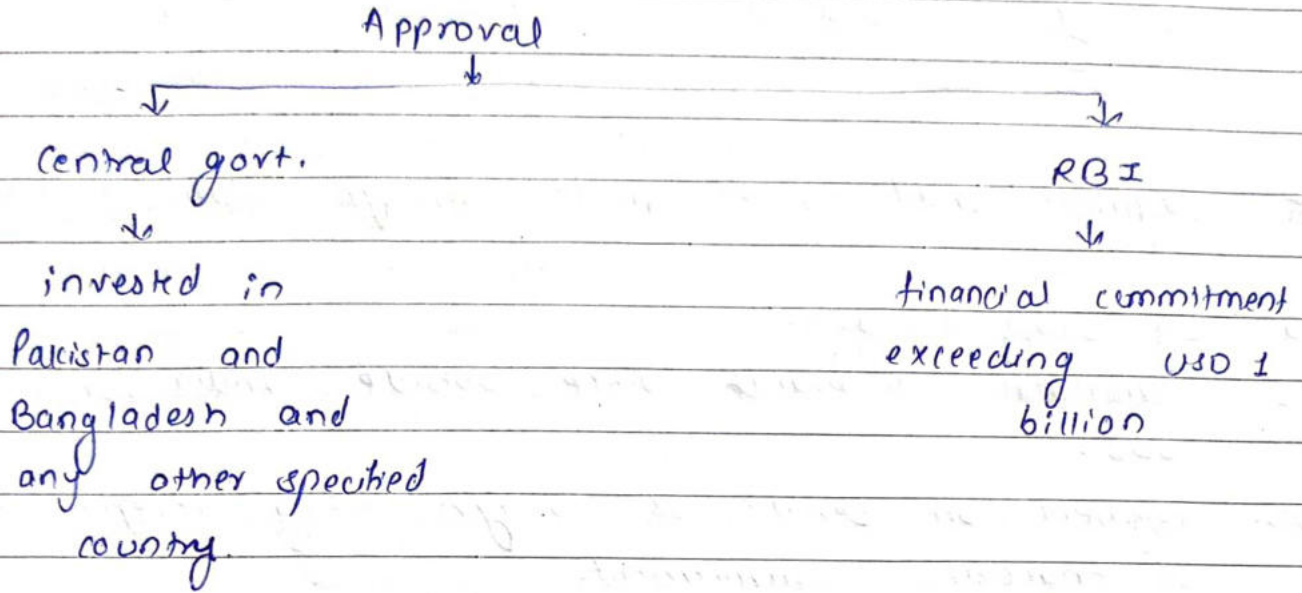 Approval
Central govt.
RBI
invested in
Pakistan and
Bangladesh and
any other specified
country.
financial commitment
exceeding USD 1
billion